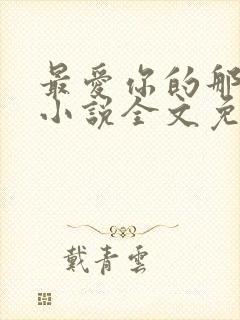 最愛你的那
小說全文免
戴青雲